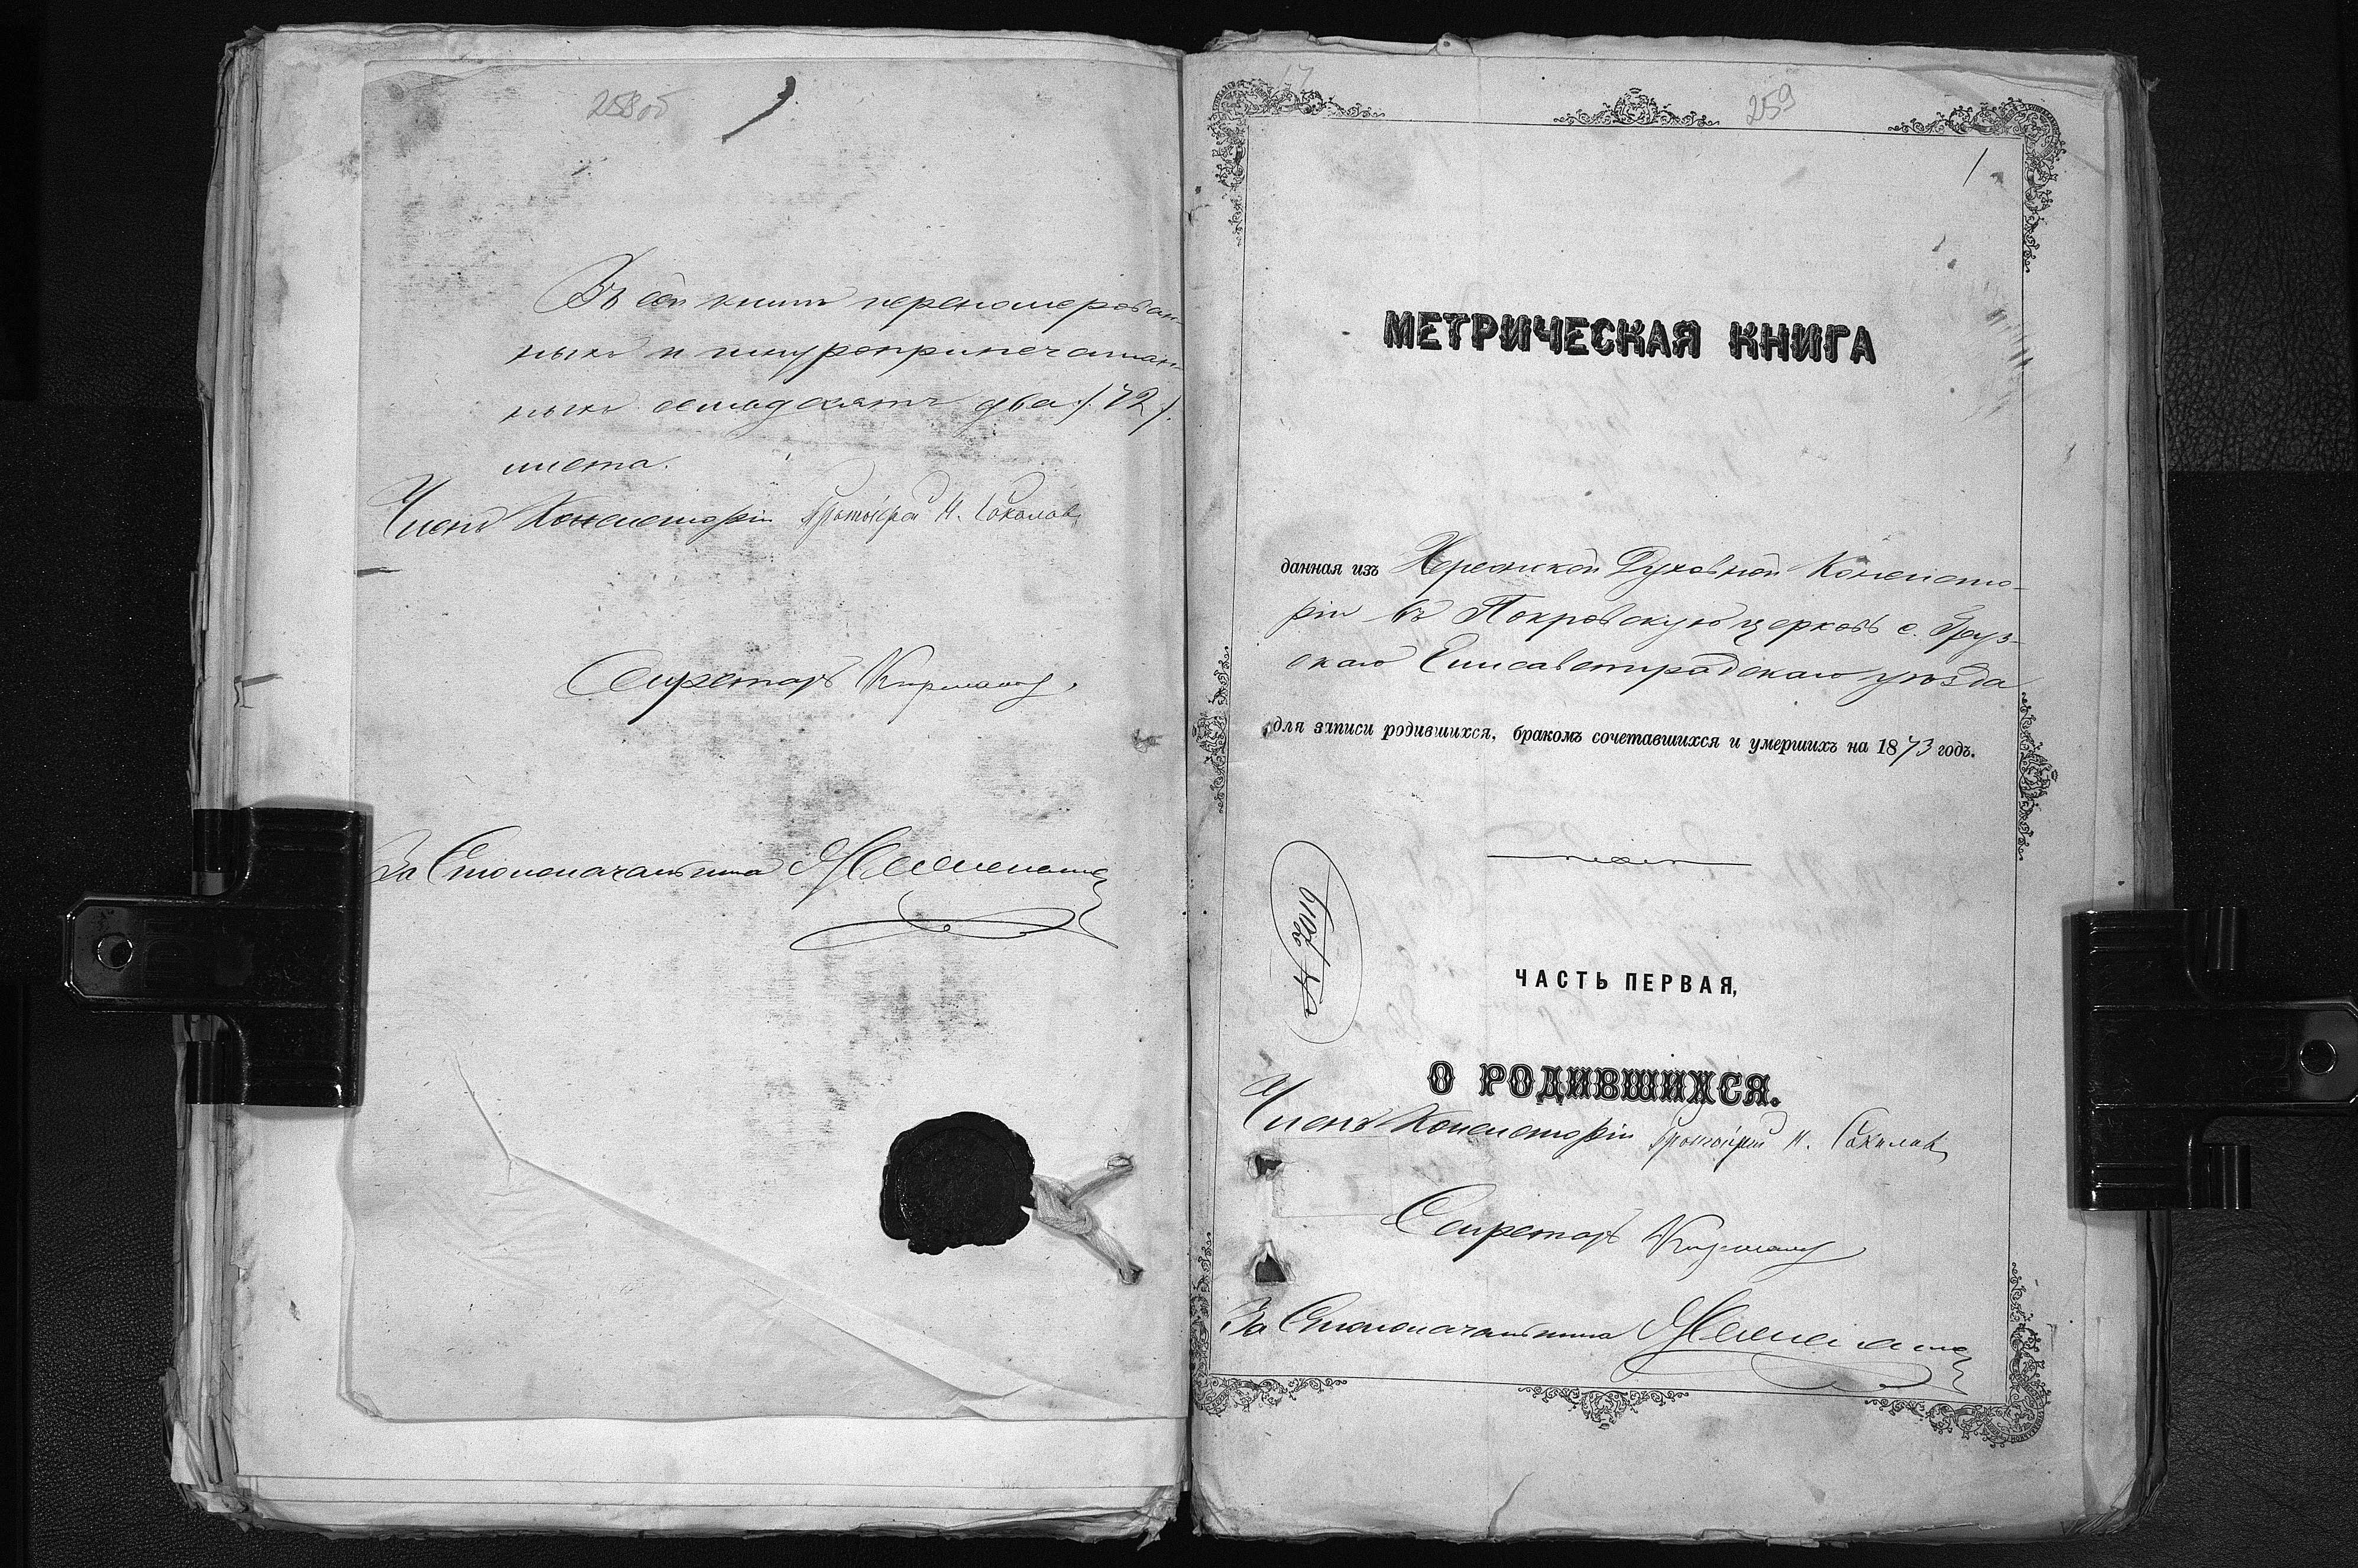 258об
Въ сей книгѣ перенумерован-
ныхъ и шнуроприпечатан-
ныхъ семьдесятъ два /72/.
листа.
Членъ Консисторіи Протоіерей Н. Соколовъ
Секретарь
За Столоначальника
17
259
1
МЕТРИЧЕСКАЯ КНИГА
данная изъ Херсонской Духовной Консисто-
ріи въ Покровскую церковь с. Груз-
скаго Елисаветградскаго уѣзда
для записи родившихся, бракомъ сочетавшихся и умершихъ на 1873 годъ.
№ 7019
ЧАСТЬ ПЕРВАЯ,
О РОДИВШИХСЯ.
Членъ Консисторіи Протоіерей Н. Соколовъ
Секретарь
За Столоначальника